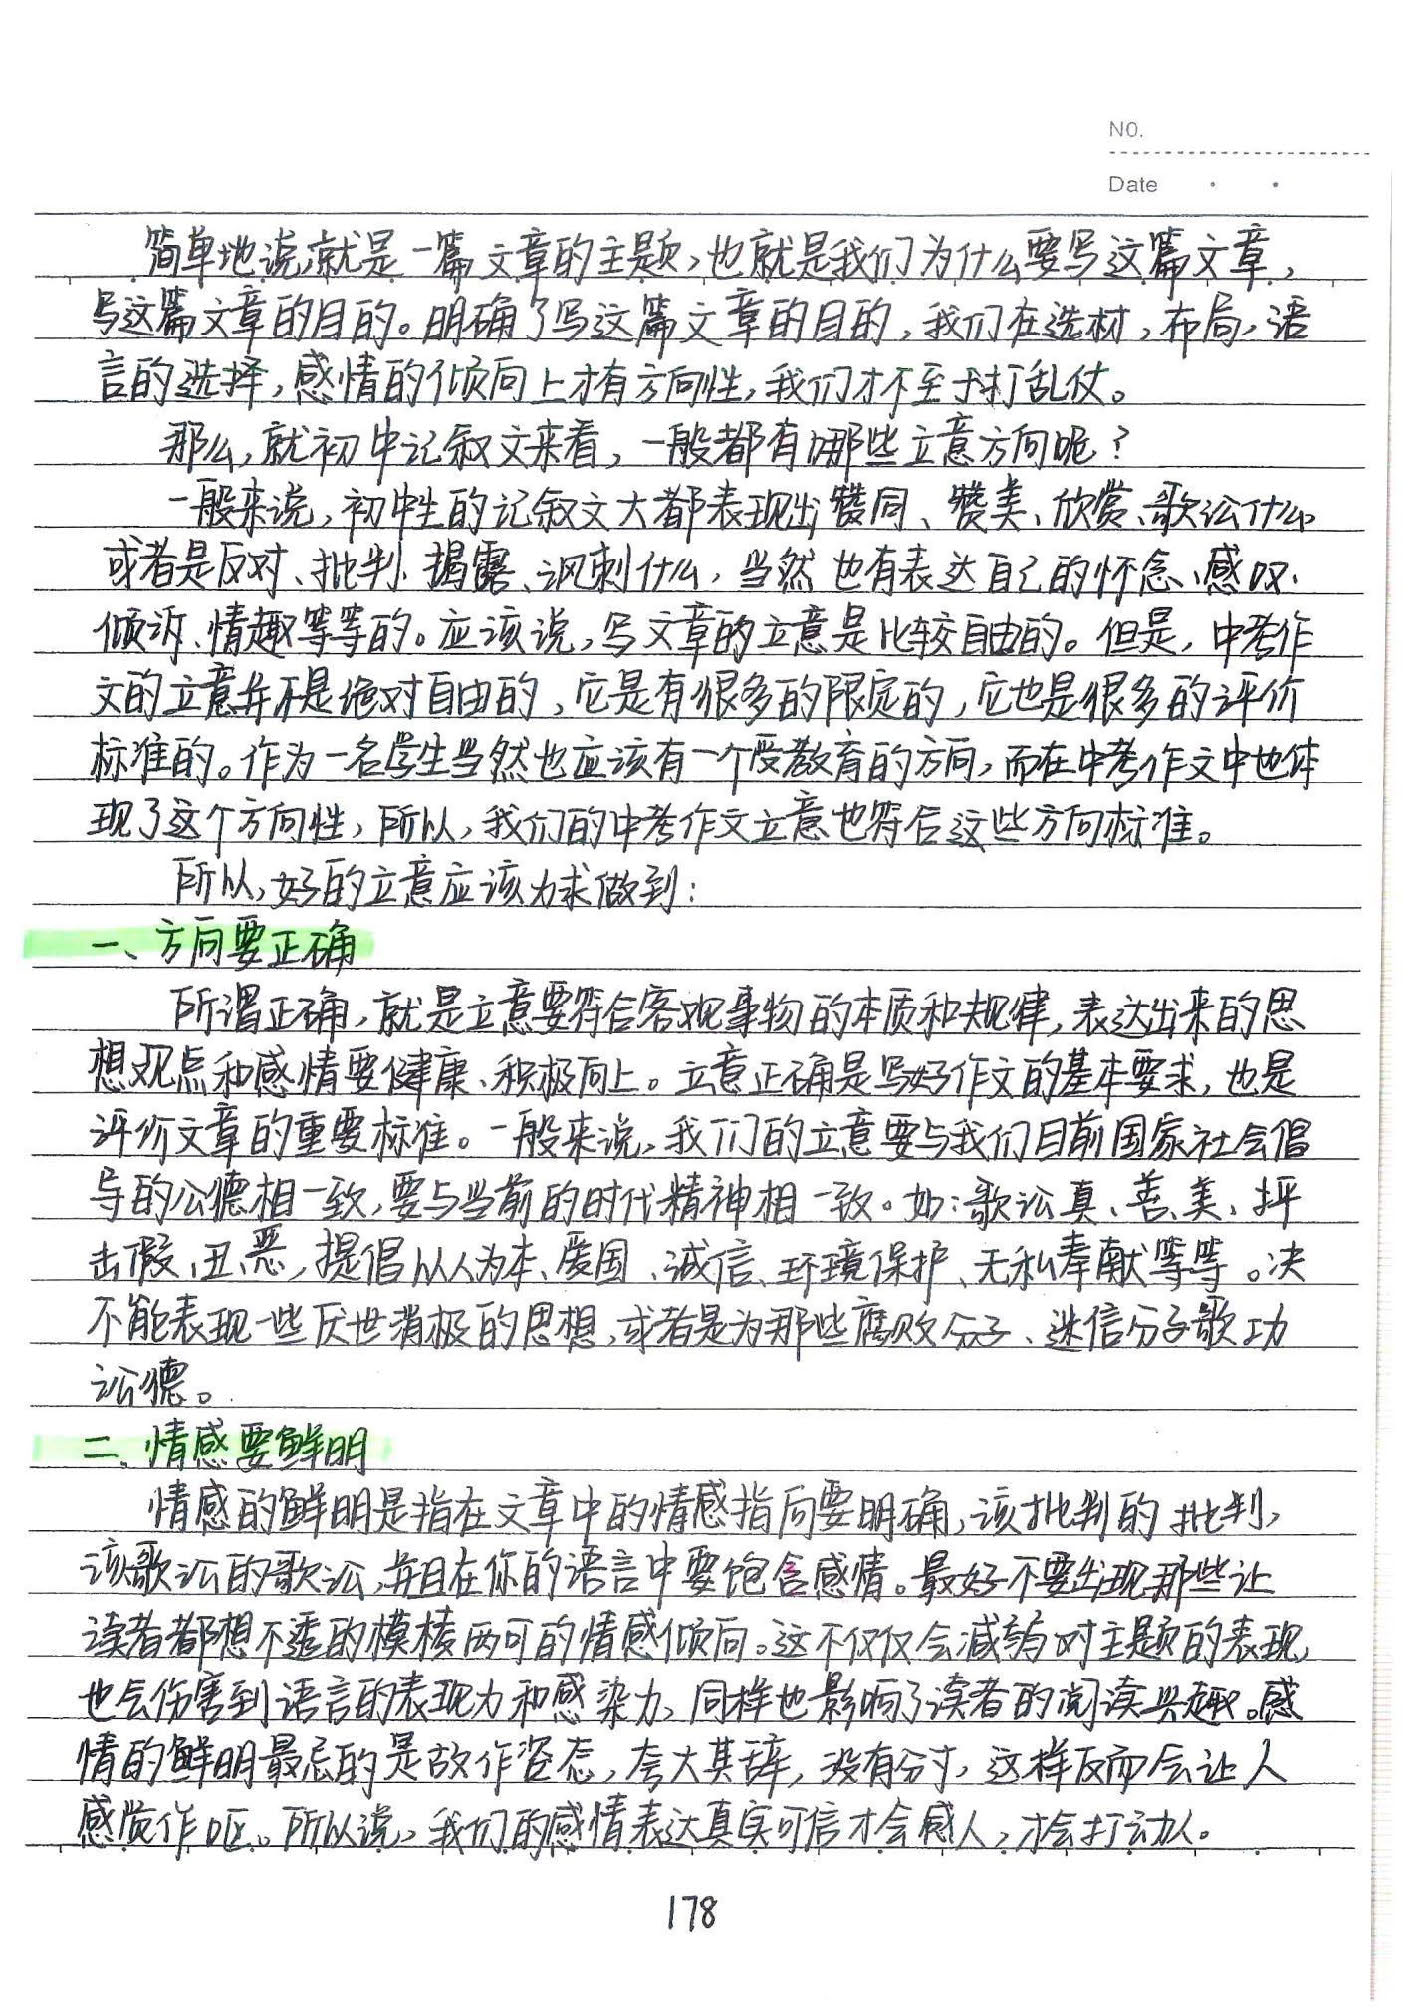 NO.
Date
简单地说,就是一篇文章的主题,也就是我们为什么要写这篇文章,
写这篇文章的目的。明确了写这篇文章的目的,我们在选材,布局,语
言的选择,感情的倾向上才有方向性,我们才不至于打乱仗。
那么,就初中记叙文来看,一般都有哪些立意方向呢?
一般来说,初中生的记叙文大都表现出赞同、赞美、欣赏、歌讼什么。
或者是反对、批判、揭露、讽刺什么,当然也有表达自己的怀念、感叹、
倾诉、情趣等等的。应该说,写文章的立意是比较自由的。但是,中考作
文的立意并不是绝对自由的,它是有很多的限定的,它也是很多的评价
标准的。作为一名学生当然也应该有一个受教育的方向,而在中考作文中也体
现了这个方向性,所以,我们的中考作文立意也符合这些方向标准。
所以,好的立意应该力求做到:
一、方向要正确
所谓正确,就是立意要符合客观事物的本质和规律,表达出来的思
想观点和感情要健康、积极向上。立意正确是写好作文的基本要求,也是
评价文章的重要标准。一般来说,我们的立意要与我们目前国家社会倡
导的公德相一致,要与当前的时代精神相一致。如:歌讼真、善、美、抨
击假、丑、恶,提倡以人为本、爱国、诚信、环境保护、无私奉献等等。决
不能表现一些厌世消极的思想,或者是为那些腐败分子、迷信分子歌功
讼德。
二、情感要鲜明
情感的鲜明是指在文章中的情感指向要明确,该批判的批判,
该歌讼的歌讼,并且在你的语言中要饱含感情。最好不要出现那些让
读者都想不透的模棱两可的情感倾向。这不仅仅会减弱对主题的表现,
也会伤害到语言的表现力和感染力,同样也影响了读者的阅读兴趣。感
情的鲜明最忌的是故作姿态,夸大其辞,没有分寸,这样反而会让人
感觉作呕。所以说,我们的感情表达真实可信才会感人,才会打动人。
178